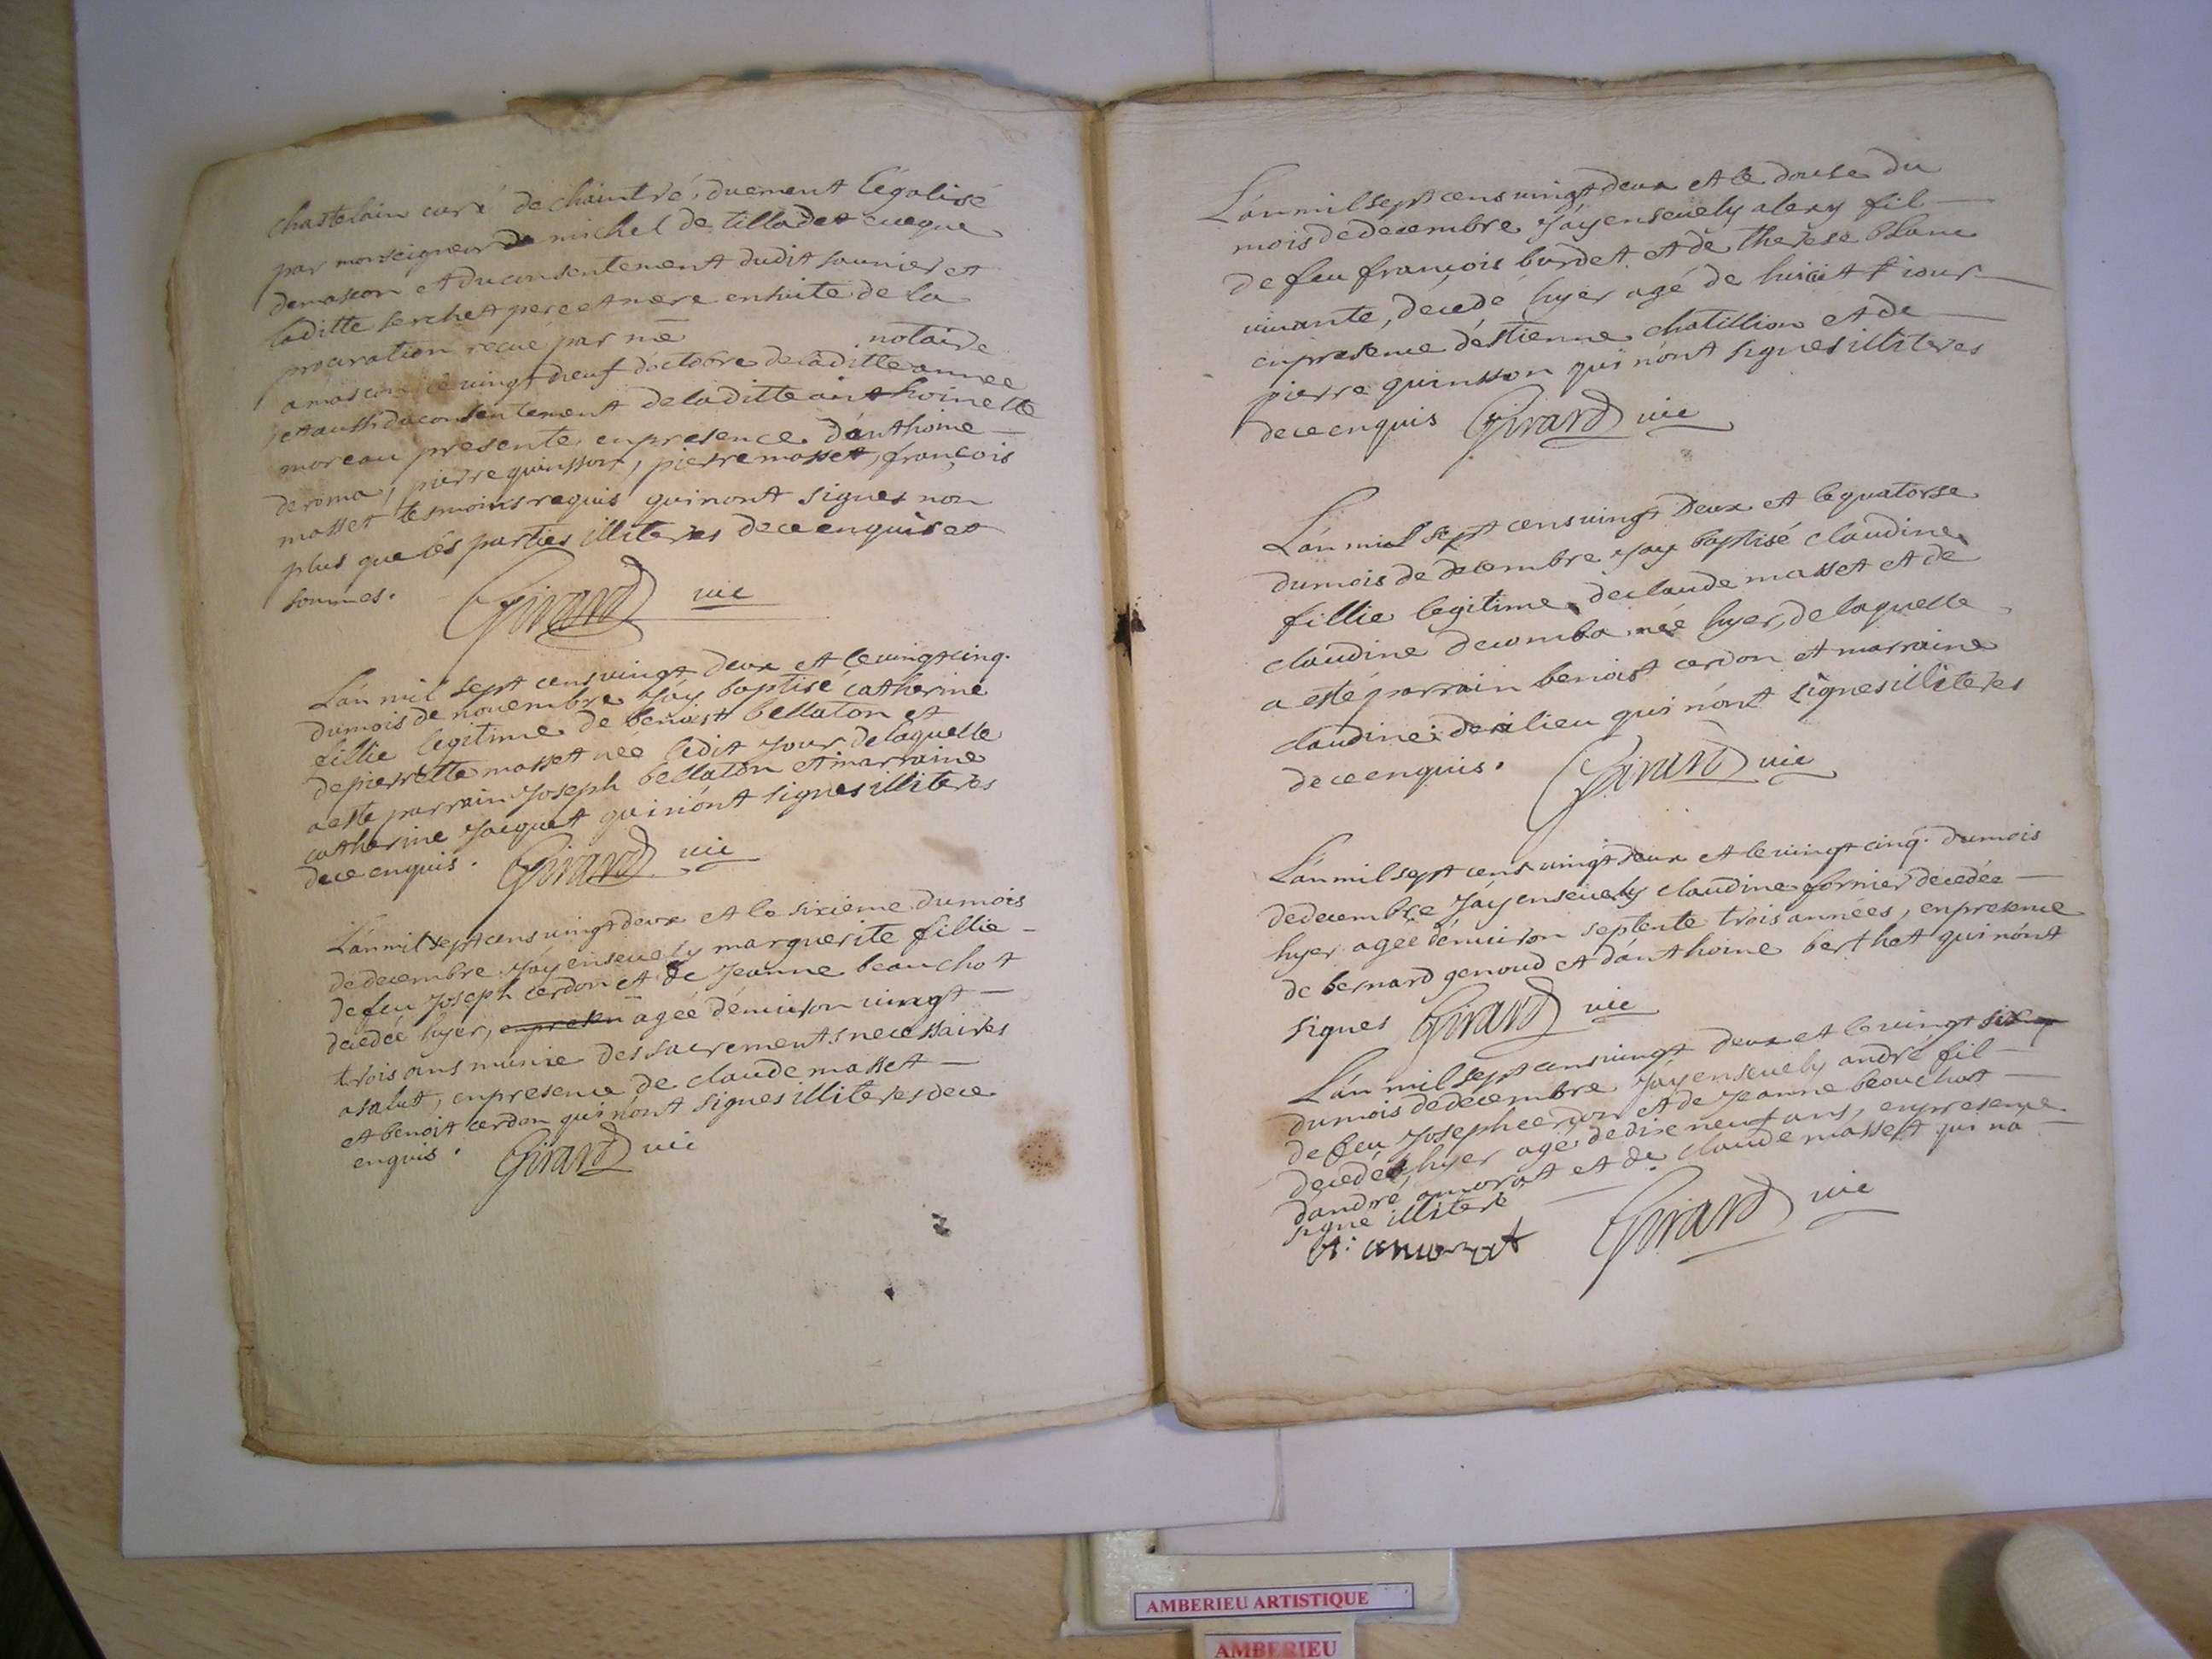 chastelain curé de chaintré, duement légalisé
par monseigneur de michel de tilladet eueque
demascon et du consentement dudit saunier et
laditte serchet pere et mere en suite de la
procuration reçue par me notaire
a mascon le uingt neuf d'octobre de laditte annee
et aussi du consentement de laditte anthoinette
moreau presente, en presence d'anthoine
deroma, pierre quinsson, pierre masset, françois
masset tesmoins requis qui n'ont signes non
plus que les parties illiteres de ce enquis et
sommes. Girard vic
L'an mil sept cens uingt deux et le uingt cinq.
du mois de nouembre j'ay baptisé catherine
fillie legitime de benoist bellaton et
de pierrette masset née ledit jour de laquelle
a esté parrain joseph bellaton et marraine
catherine jacquet qui n'ont signes illiteres
de ce enquis. Girard vic
L'an mil sept cens uingt deux et le sixieme du mois
de decembre j'ay enseuely marguerite fillie
de feu joseph cerdon et de jeanne beauchot
decedée hyer, en presen agée d'enuiron uingt
trois ans munie des sacrements necessaires
a salut, en presence de claude masset
et benoit cerdon qui n'ont signes illiteres de ce
enquis. Girard vic
L'an mil sept cens uingt deux et le douse du
mois de decembre j'ay enseuely alexy fil
de feu françois burdet et de therese blanc
uiuante, décédé hyer agé de huict jour
en presence d'estienne chatillion et de
pierre quinsson qui n'ont signes illiteres
de ce enquis Girard vic
L'an mil sept cens uingt deux et le quatorse
du mois de decembre j'ay baptisé claudine
fillie legitime de claude masset et de
claudine decomba née hyer, de laquelle
a esté parrain benoist cerdon et marraine
claudine deilieu qui n'ont signes illiteres
de ce enquis. Girard vic
L'an mil sept cens uingt deux et le uingt cinq. du mois
de decembre j'ay enseuely claudine fornier decedée
hyer agée d'enuiron septente trois années, en presence
de bernard genoud et d'anthoine berthet qui n'ont
signes Girard vic
L'an mil sept cens uingt deux et le uingt six
du mois de decembre j'ay enseuely andré fil
de feu joseph cerdon et de jeanne beauchot
decedé hyer agé de dix neuf ans, en presence
d'andré amorat et de claude masset qui na
signé illiteré
A: amorat Girard vic
AMBERIEU ARTISTIQUE
AMBERIEU